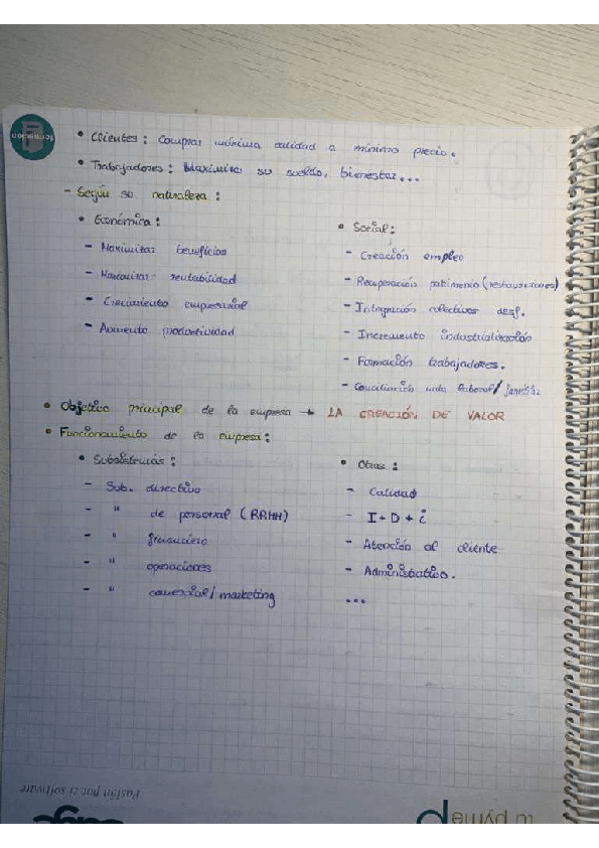 • Clientes: Comprar máxima calidad a mínimo precio.
• Trabajadores: Maximizar su sueldo, bienestar...
- Según su naturaleza:
• Económica:
- Maximizar beneficios
- Maximizar rentabilidad
- Crecimiento empresarial
- Aumento productividad
• Social:
- Creación empleo
- Recuperación patrimonio (restauraciones)
- Integración colectivos desf.
- Incremento industrialización
- Formación trabajadores.
- Conciliación vida laboral/
• Objetivo principal de la empresa → LA CREACIÓN DE VALOR
• Funcionamiento de la empresa:
• Subsistemas:
- Sub. directivo
- " de personal (RRHH)
- " financiero
- " operaciones
- " comercial/marketing
• Otras:
- Calidad
- I+D+i
- Atención al cliente
- Administrativo.
...
Pasión por el software
sage
tu pyme